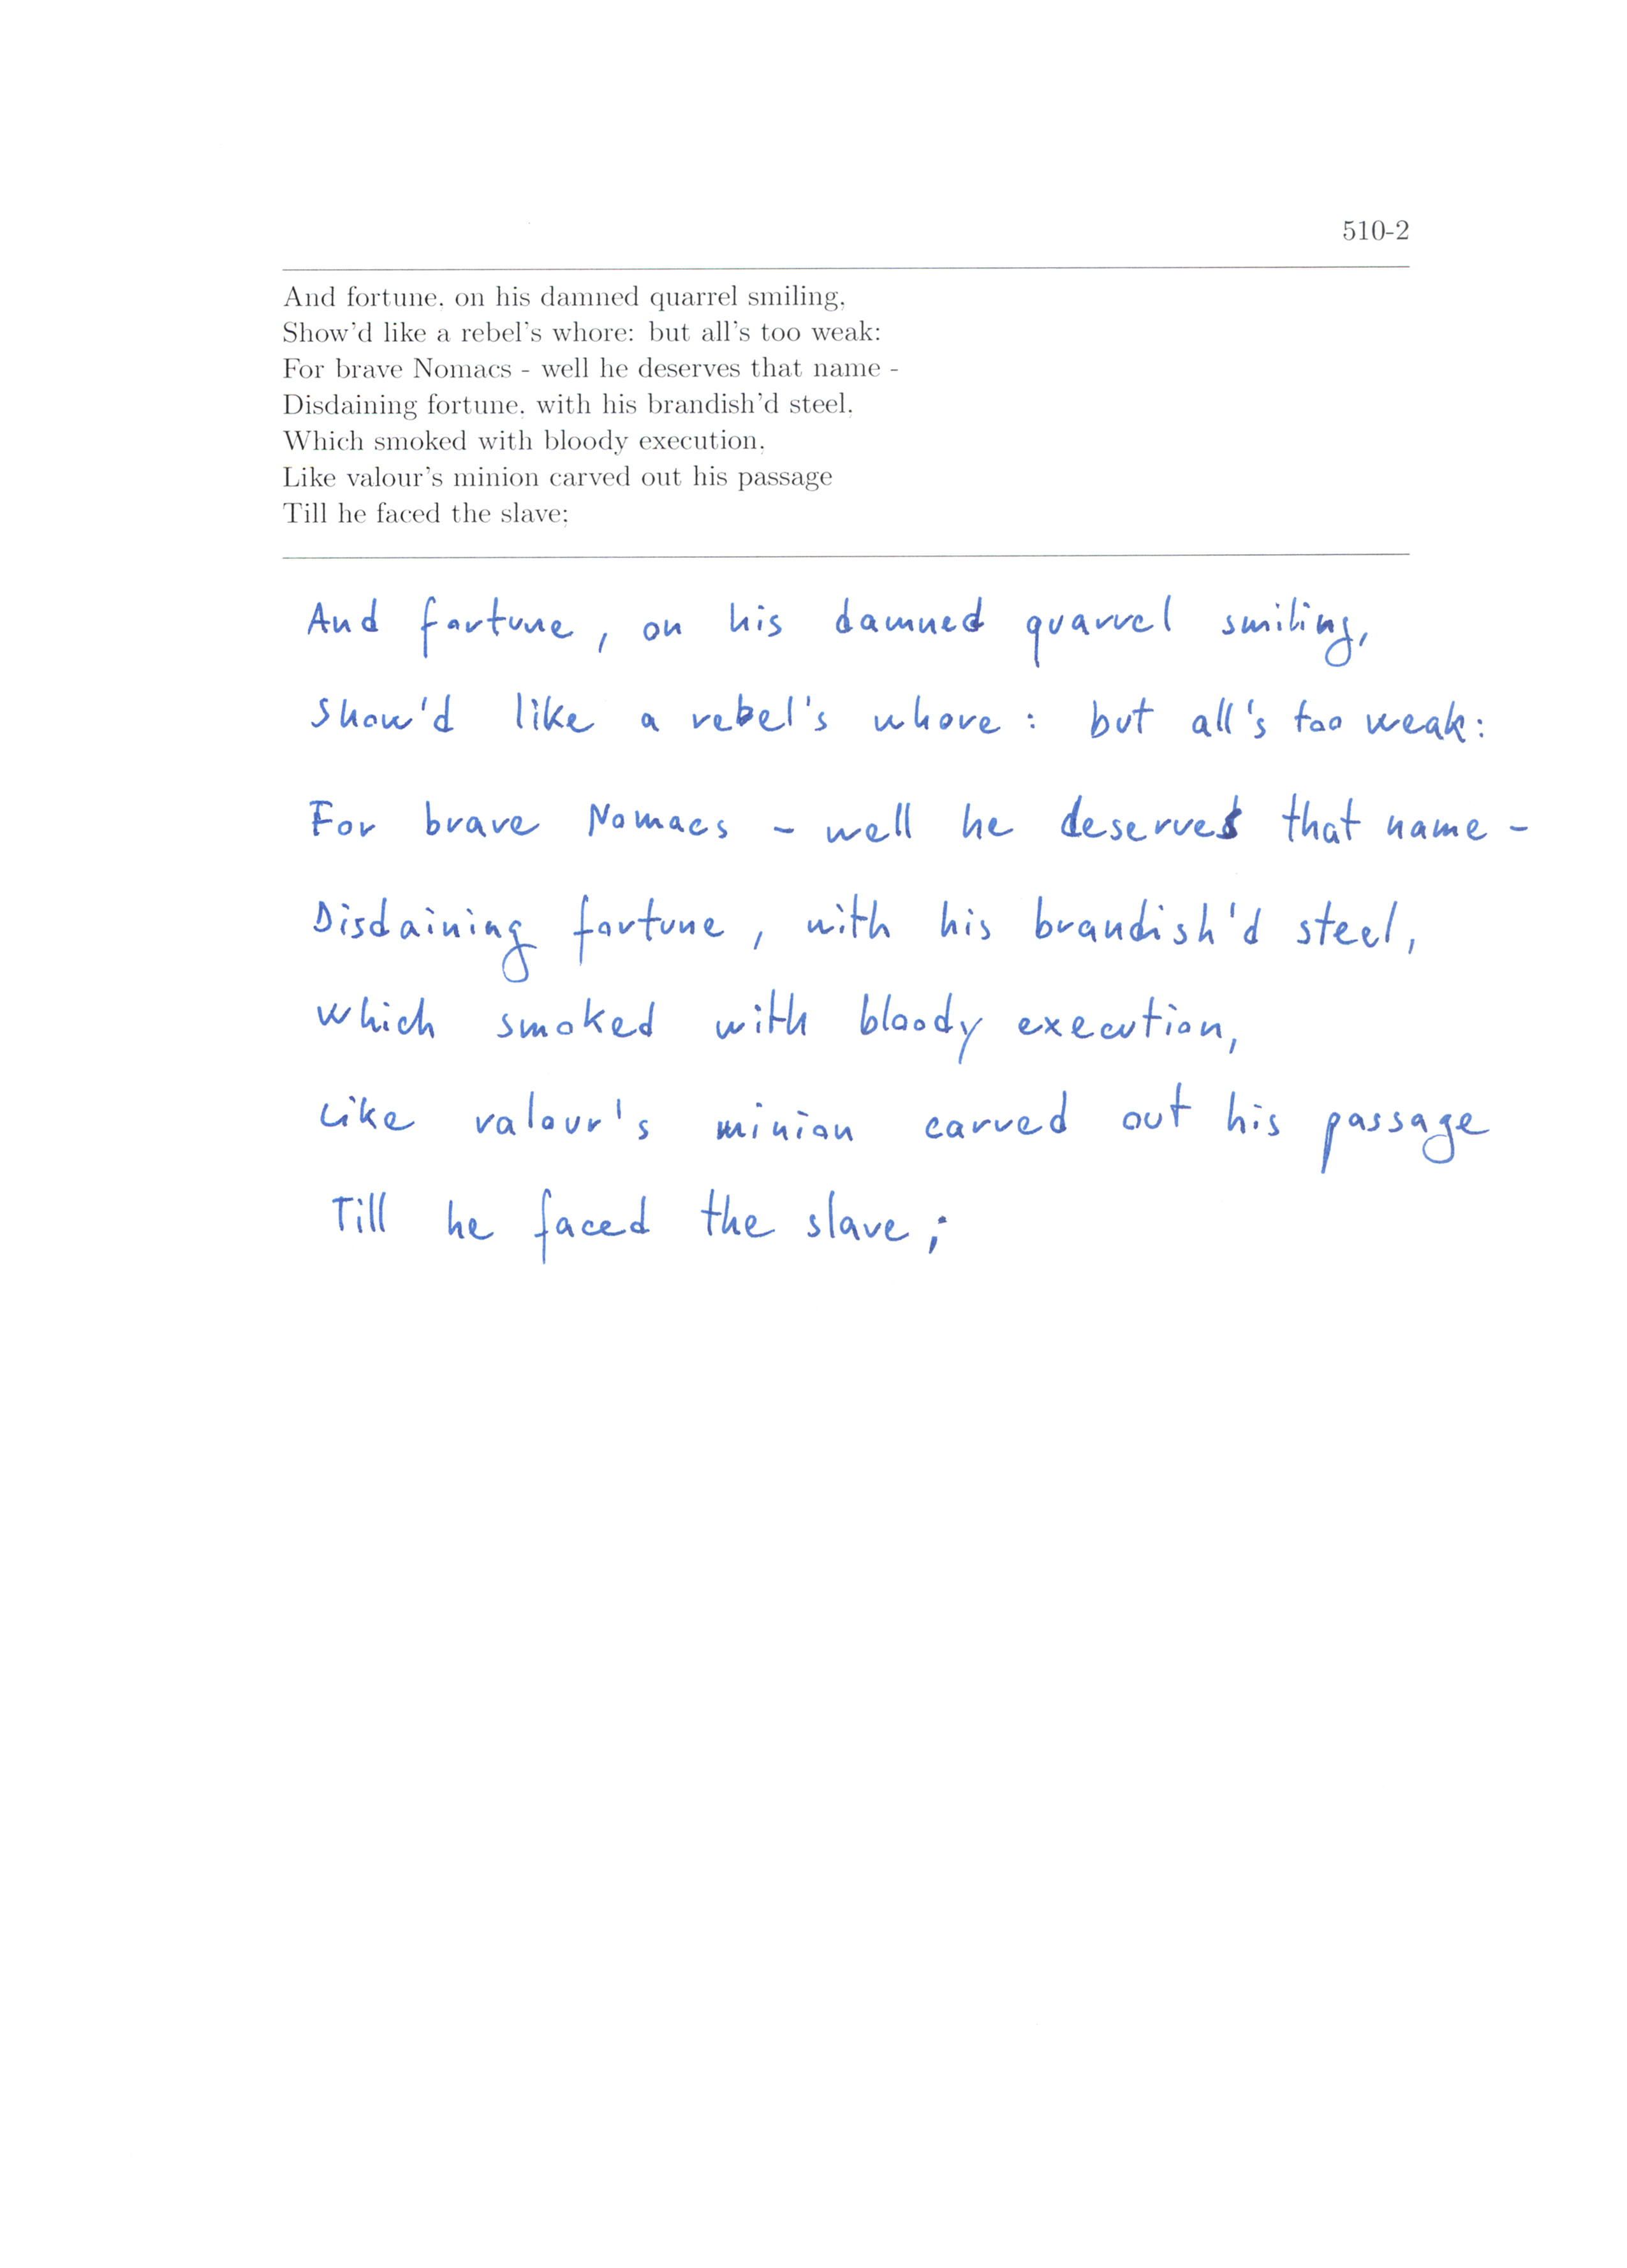 510-2
And fortune, on his damned quarrel smiling,
Show'd like a rebel's whore: but all's too weak:
For brave Nomacs - well he deserves that name -
Disdaining fortune, with his brandish'd steel,
Which smoked with bloody execution,
Like valour's minion carved out his passage
Till he faced the slave;
And fortune, on his damned quarrel smiling,
Show'd like a rebel's whore: but all's too weak:
For brave Nomacs - well he deserves that name -
Disdaining fortune, with his brandish'd steel,
Which smoked with bloody execution,
Like valour's minion carved out his passage
Till he faced the slave;